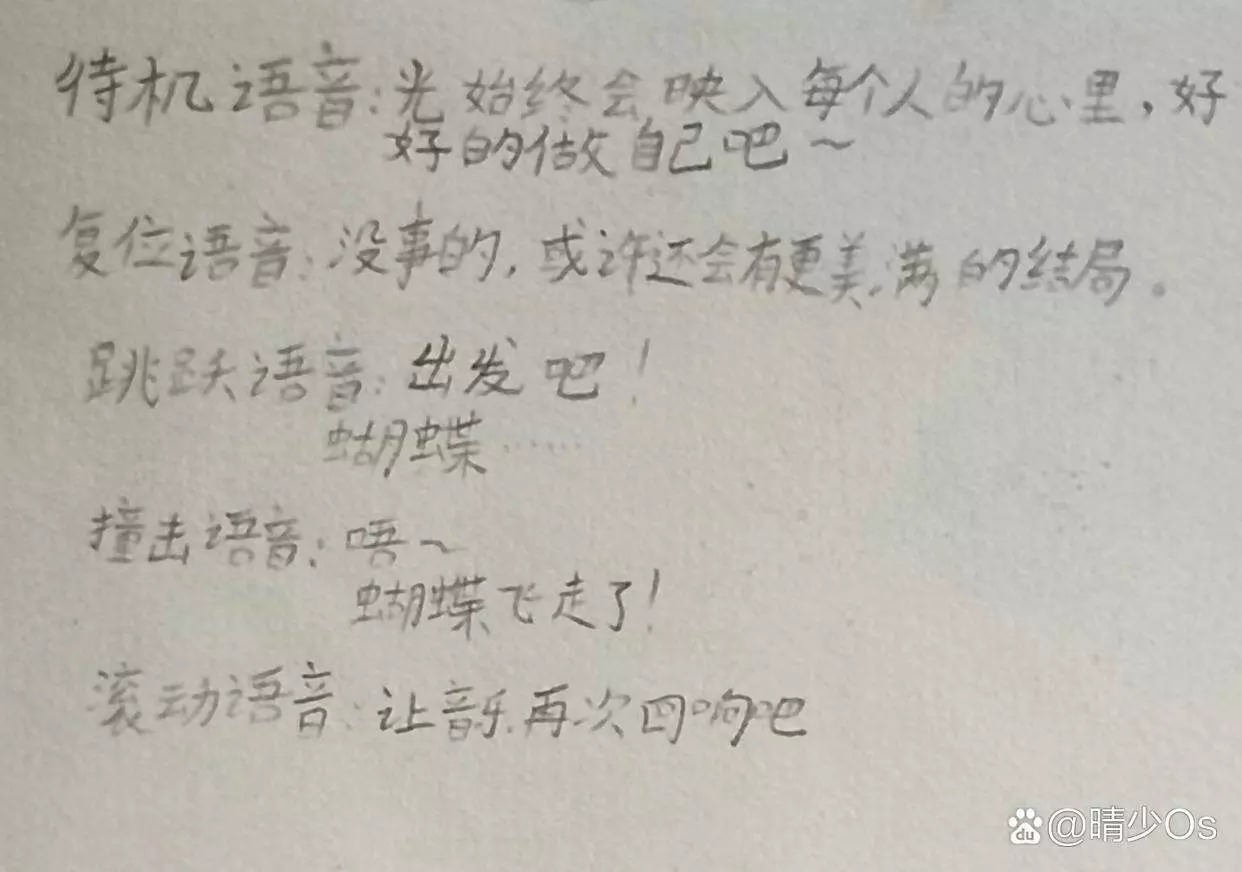 待机语音：光始终会映入每个人的心里，好
好的做自己吧～
复位语音：没事的，或许还会有更美满的结局。
跳跃语音：出发吧！
蝴蝶……
撞击语音：唔～
蝴蝶飞走了！
滚动语音：让音乐再次回响吧
du @晴少Os